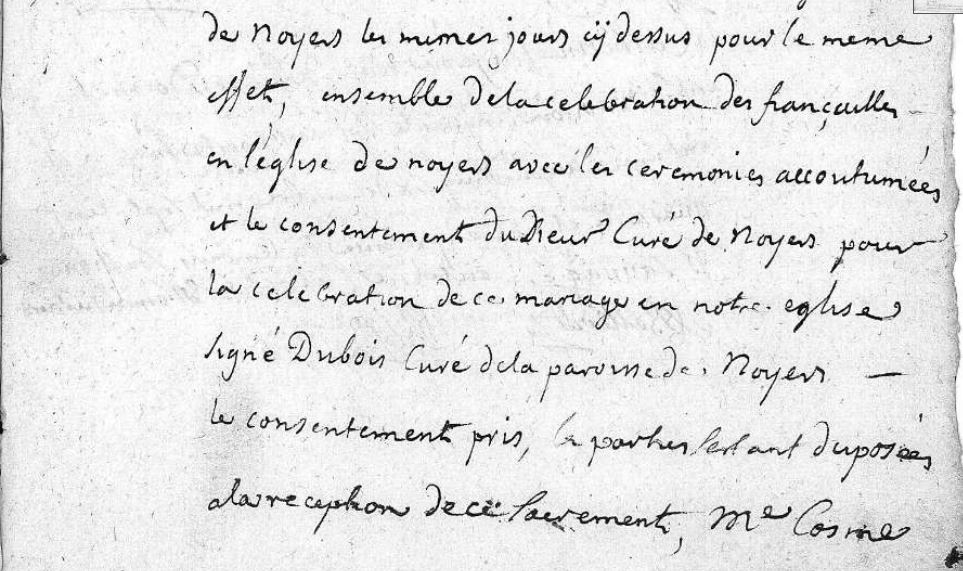 de Noyers les memes jours cÿ dessus pour le meme
effet, ensemble de la celebration des françailles
en l'église de noyers avec les ceremonies accoutumées
et le consentement du Sieur Curé de Noyers pour
la celebration de ce mariage en notre eglise
signé Dubois Curé de la paroisse de Noyers —
le consentement pris, les parties s'estant disposées
a la reception de ce sacrement, Me Cosme